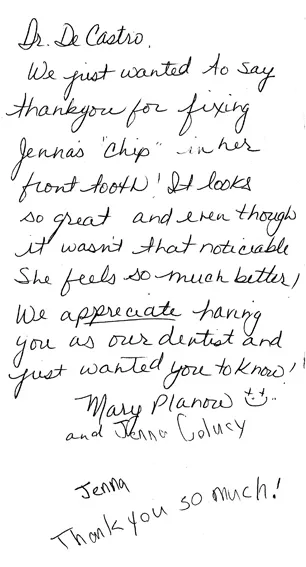 Dr. De Castro,
We just wanted to say
thankyou for fixing
Jenna's "chip" in her
front tooth! It looks
so great and even though
it wasn't that noticiable
She feels so much better!
We appreciate having
you as our dentist and
just wanted you to know!
Mary Planow
and Jenna Colucy
Jenna
Thank you so much!